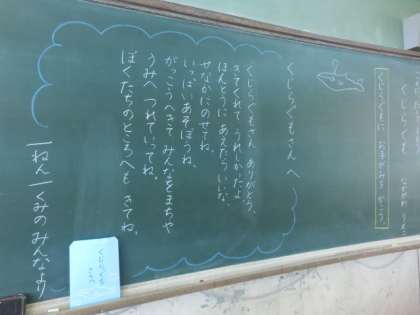 くじらぐもに おてがみを かこう。
くじらぐもさんへ
くじらぐもさん ありがとう。
きてくれて うれしかったよ。
ほんとうに あえたらいいな。
せなかにのせてね。
いっぱいあそぼうね。
がっこうへきて みんなをまちや
うみへ つれていってね。
ぼくたちのところへも きてね。
一ねん一くみのみんなより